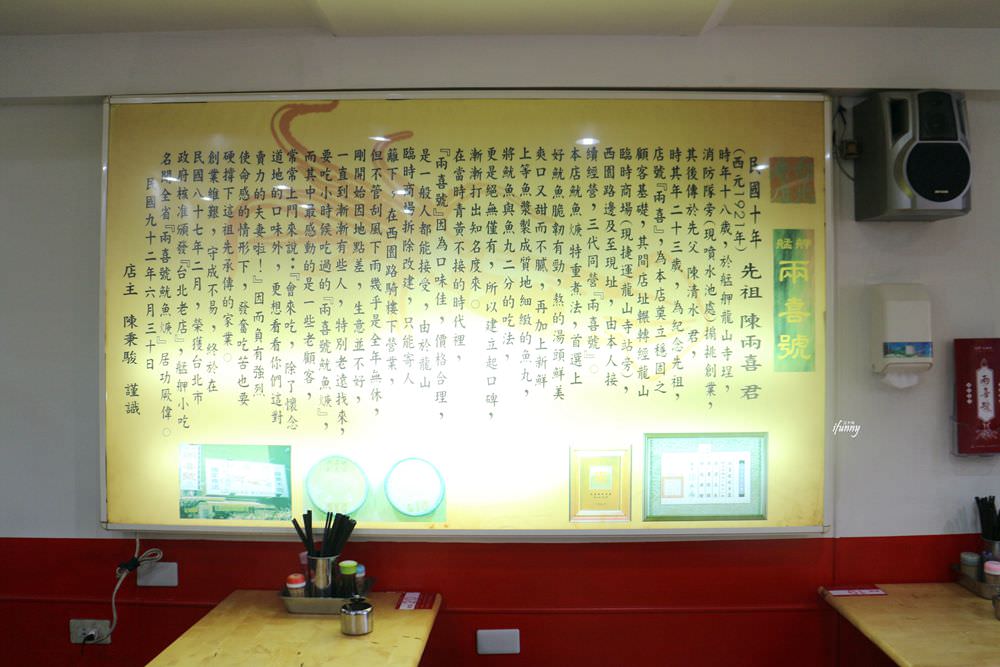 艋舺
兩喜號
民國十年 先祖 陳兩喜 君
(西元1921年)
時年十八歲，於艋舺龍山寺埕，
消防隊旁(現噴水池處)搧挑創業，
其後傳於先父 陳清水 君，
時其年二十三歲，為紀念先祖，
店號『兩喜』，為本店奠立穩固之
顧客基礎，其間店址輾轉經龍山
臨時商場(現捷運龍山寺站旁)、
西園路邊及至現址 由本人接
續經營，三代同營『兩喜號』。
本店魷魚焿特重者法，首選上
好魷魚脆韌有勁，熬的湯頭鮮美
爽口又甜而不膩，再加上新鮮
上等魚漿製成質地細緻的魚丸，
將魷魚與魚丸二分的吃法，
更是絕無僅有，所以建立起口碑，
漸漸打出知名度來。
在當時青黃不接的時代裡，
『兩喜號』因為口味佳，價格合理，
是一般人都能接受，由於龍山
臨時商場拆除改建，只能寄人
籬下，在西園路騎樓下營業，
但不管刮風下雨幾乎是全年無休，
剛開始因地點差，生意並不好，
一直到漸漸有些人，特別老遠找來，
要吃小時候吃過的『兩喜號魷魚焿』，
而其中最感動的是一些老顧客，
常常上門來說：『會來吃，除了懷念
道地的口味外，更想看看你們這對
賣力的夫妻啦！』因而負有強烈
使命感的情形下，發奮吃苦也要
硬撐下這祖先承傳的家業。
創業維艱，守成不易，終於在
民國八十七年二月，榮獲台北市
政府核准頒發『台北老店』，艋舺小吃
名聞全省『兩喜號魷魚焿』居功厥偉。
民國九十二年六月三十日
店主 陳秉駿 謹識
兩喜號
ifunny